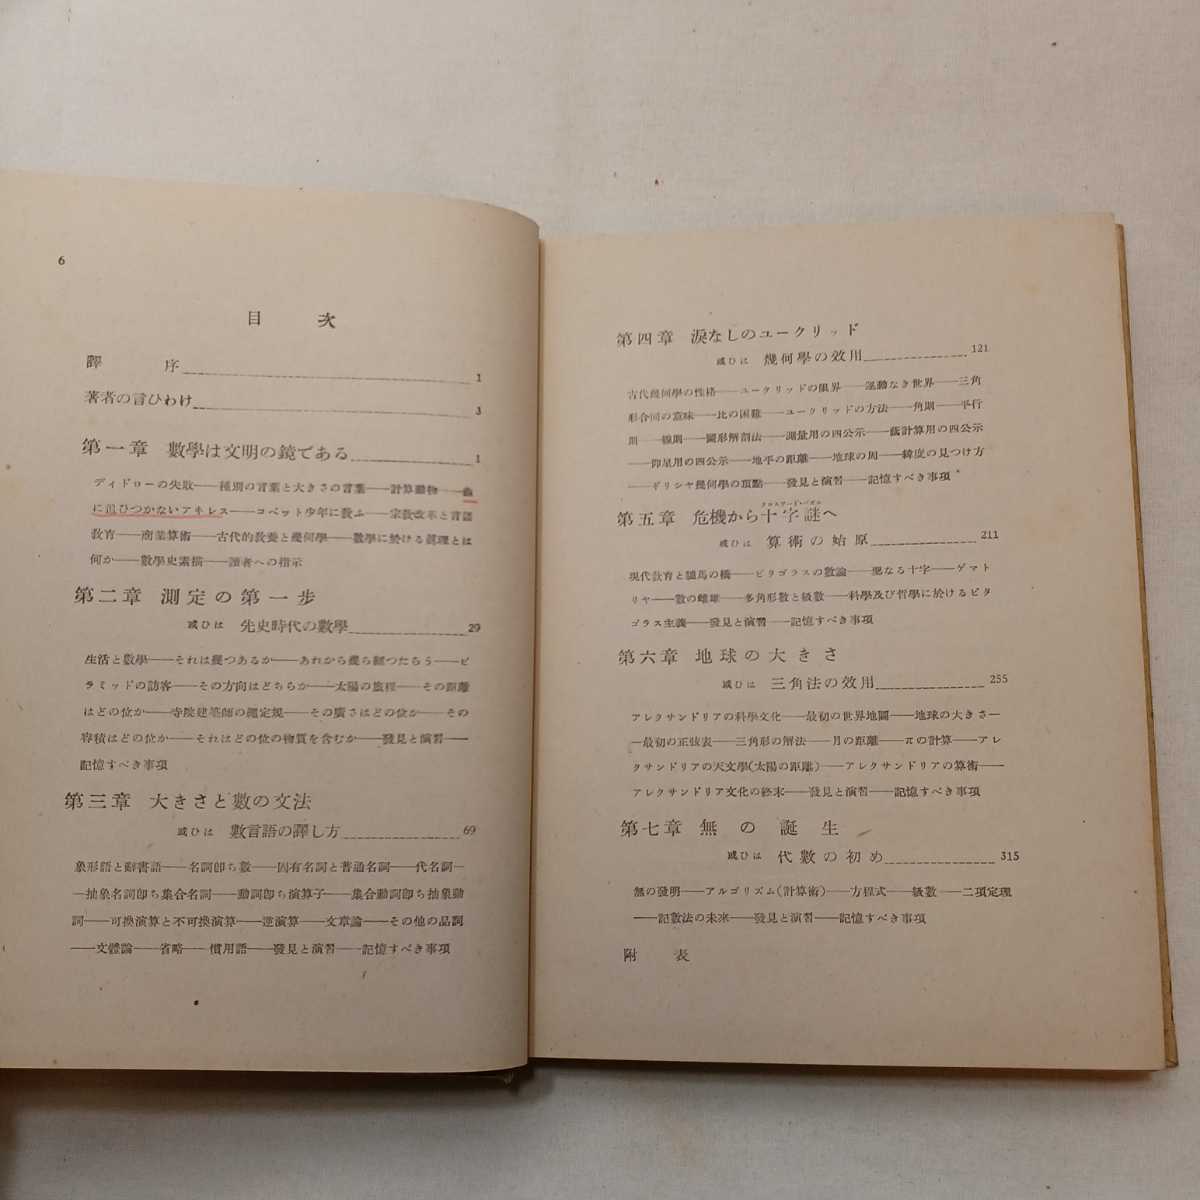 6
目次
譯序 1
著者の言ひわけ 3
第一章 數學は文明の鏡である 1
ディドローの失敗——種別の言葉と大きさの言葉——計算動物——龜
に追ひつかないアキレス——コベット少年に敎ふ——宗敎改革と言語
敎育——商業算術——古代的敎養と幾何學——數學に於ける眞理とは
何か——數學史素描——讀者への指示
第二章 測定の第一步
或ひは 先史時代の數學 29
生活と數學——それは幾つあるか——あれから幾ら經つたらう——ピ
ラミッドの訪客——その方向はどちらか——太陽の旅程——その距離
はどの位か——寺院建築師の繩定規——その廣さはどの位か——その
容積はどの位か——それはどの位の物質を含むか——發見と演習——
記憶すべき事項
第三章 大きさと數の文法
或ひは 數言語の譯し方 69
象形語と辭書語——名詞卽ち數——固有名詞と普通名詞——代名詞—
—抽象名詞卽ち集合名詞——動詞卽ち演算子——集合動詞卽ち抽象動
詞——可換演算と不可換演算——逆演算——文章論——その他の品詞
——文體論——省略——慣用語——發見と演習——記憶すべき事項
第四章 淚なしのユークリッド
或ひは 幾何學の效用 121
古代幾何學の性格——ユークリッドの限界——運動なき世界——三角
形合同の意味——比の困難——ユークリッドの方法——角則——平行
則——線則——圖形解剖法——測量用の四公示——藝計算用の四公示
——仰星用の四公示——地平の距離——地球の周——緯度の見つけ方
——ギリシヤ幾何學の頂點——發見と演習——記憶すべき事項
クロスワード・パズル
第五章 危機から十字謎へ
或ひは 算術の始原 211
現代敎育と驢馬の橋——ピタゴラスの數論——聖なる十字——ゲマト
リヤ——數の雌雄——多角形數と級數——科學及び哲學に於けるピタ
ゴラス主義——發見と演習——記憶すべき事項
第六章 地球の大きさ
或ひは 三角法の效用 255
アレクサンドリアの科學文化——最初の世界地圖——地球の大きさ—
—最初の正弦表——三角形の解法——月の距離——πの計算——アレ
クサンドリアの天文學(太陽の距離)——アレクサンドリアの算術——
アレクサンドリア文化の終末——發見と演習——記憶すべき事項
第七章 無の誕生
或ひは 代數の初め 315
無の發明——アルゴリズム(計算術)——方程式——級數——二項定理
——記數法の未來——發見と演習——記憶すべき事項
附表